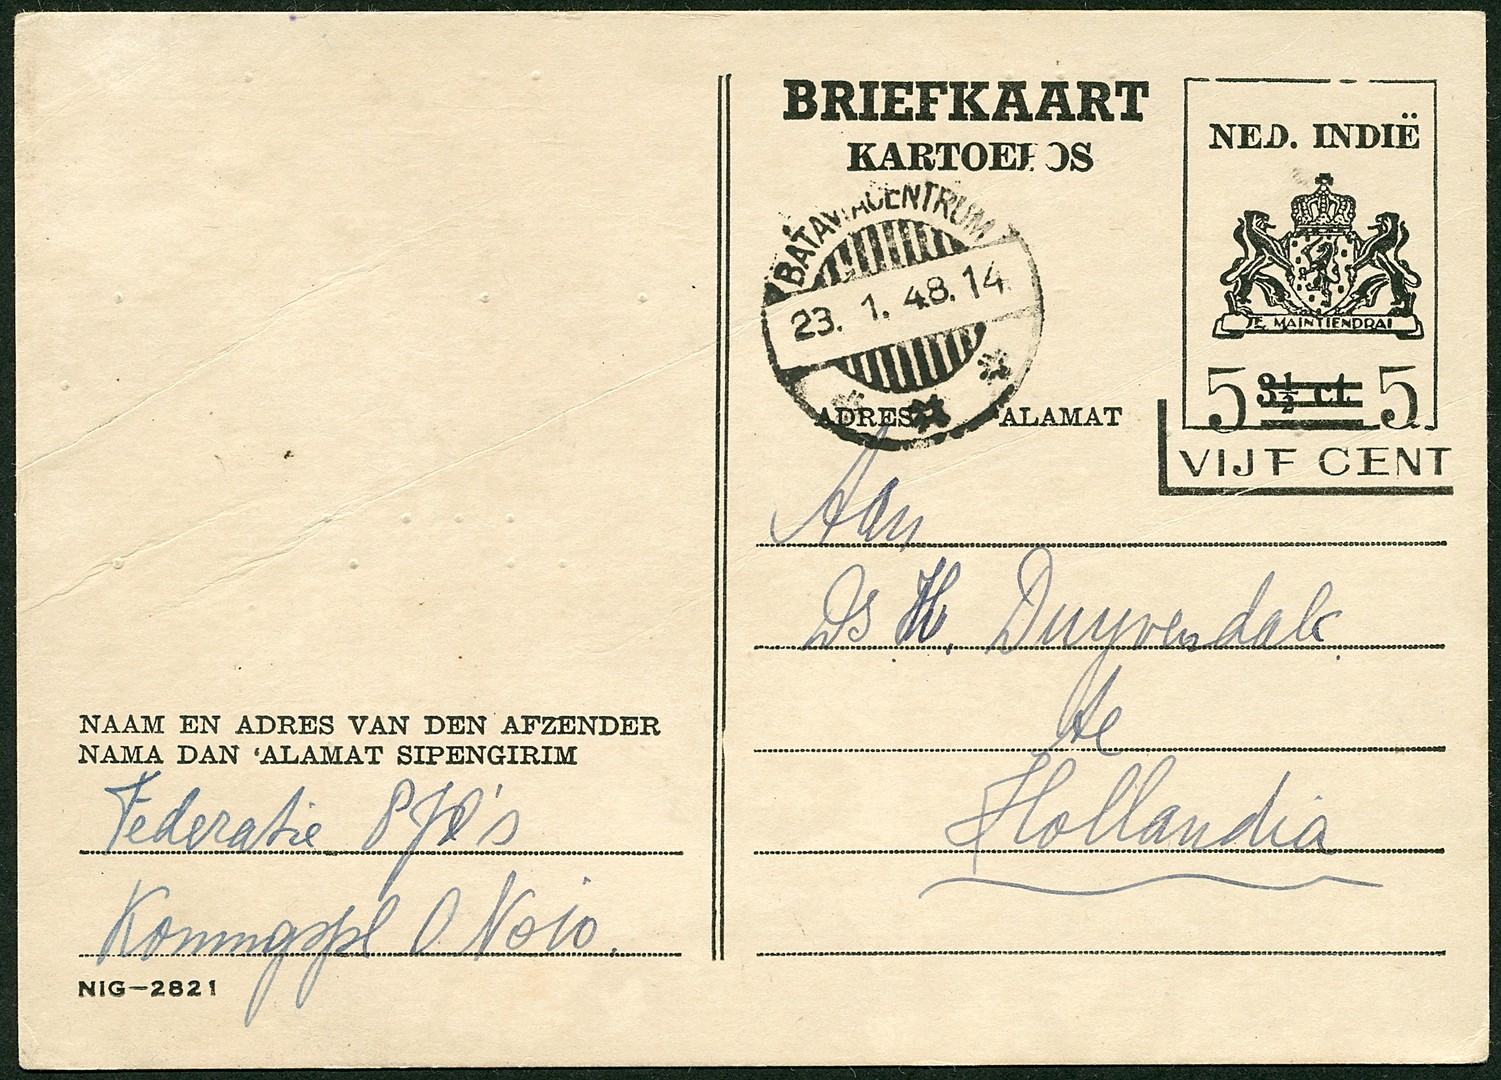 BRIEFKAART
KARTOEPOS
NED. INDIË
JE MAINTIENDRAI
5 3½ ct. 5
VIJF CENT
BATAVIACENTRUM
23. 1. 48. 14
ADRES ALAMAT
Aan
Ds H. Duyvendak
te
Hollandia
NAAM EN ADRES VAN DEN AFZENDER
NAMA DAN ‘ALAMAT SIPENGIRIM
Federatie
Koningspl O No 10.
NIG—2821